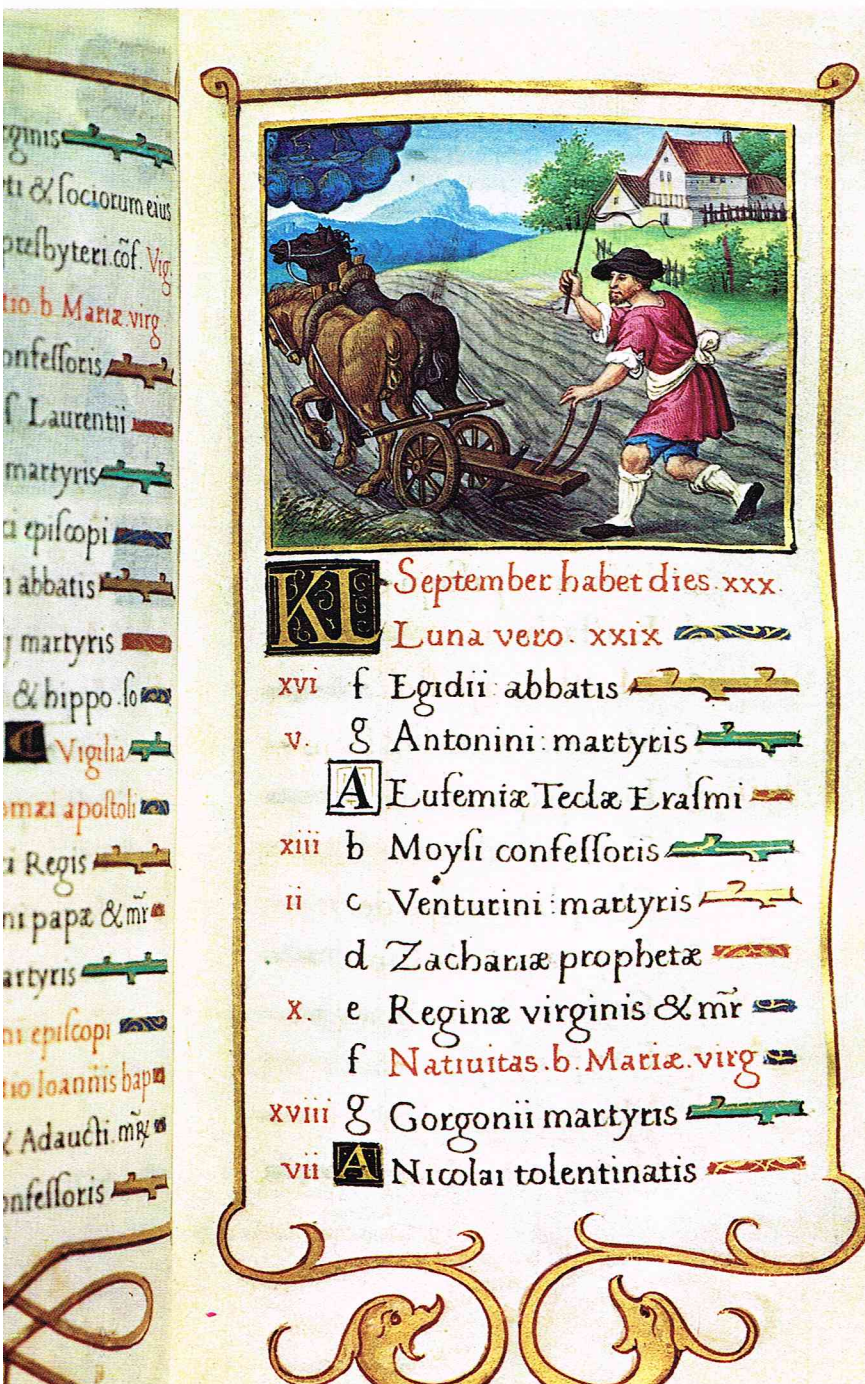 ginis
ti & ſociorum eius
preſbyteri.cõf. Vig.
tio b Mariæ.virg
onfeſſoris
ſ Laurentii
martyris
epiſcopi
abbatis
martyris
& hippo.ſo
Vigilia
omæi apoſtoli
Regis
ni papæ & mr̃
artyris
ni epiſcopi
tio Ioannis bap
Adaucti. mr̃
onfeſſoris
KL September habet dies. xxx.
Luna vero. xxix
xvi f Egidii abbatis
v. g Antonini: martyris
A Eufemiæ Teclæ Eraſmi
xiii b Moyſi confeſſoris
ii c Venturini: martyris
d Zachariæ prophetæ
x. e Reginæ virginis & mr̃
f Natiuitas.b.Mariæ.virg
xviii g Gorgonii martyris
vii A Nicolai tolentinatis